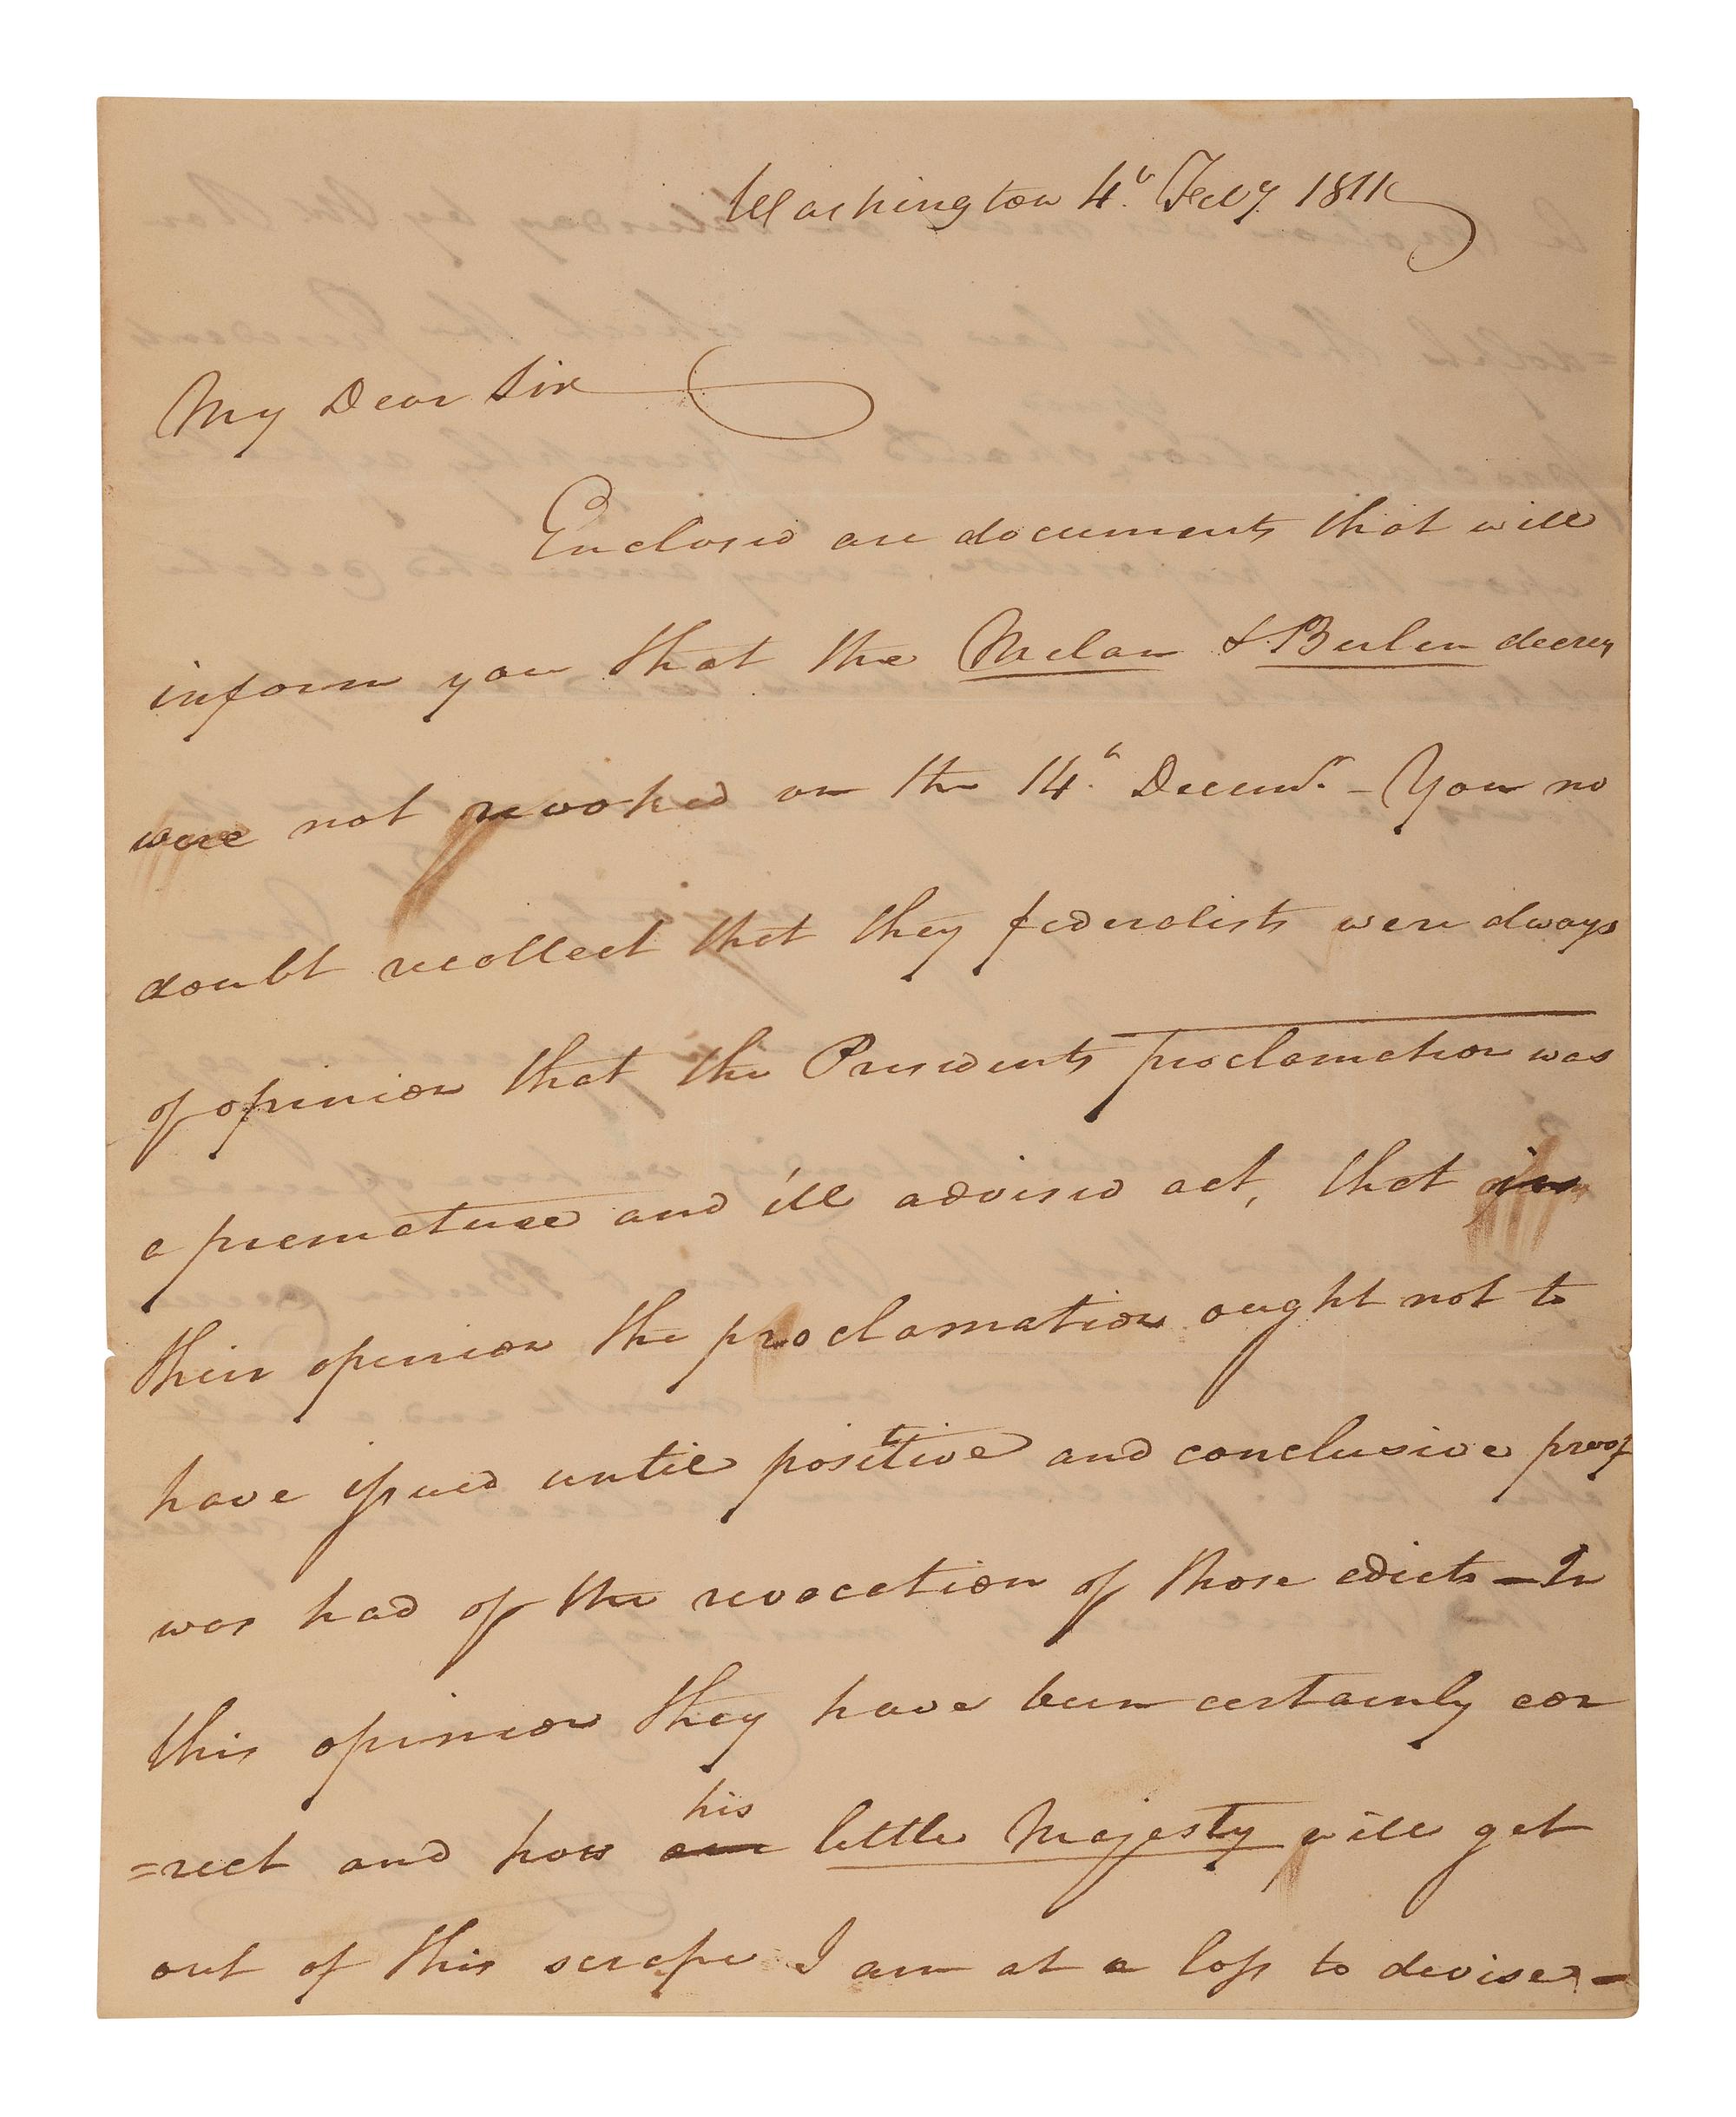 Washington 4h. Feby. 1811
My Dear Sir
Enclosed are documents that will
inform you that the Milan & Berlin decrees
were not revoked on the 14h. Decemr. - You no
doubt recollect that they federalists were always
of opinion that the Presidents proclamation was
a premature and ill advised act, that in
their opinion the proclamation ought not to
have issued until positive and conclusive proof
was had of the revocation of those edicts - In
this opinion they have been certainly cor
=rect and how his our little Majesty will get
out of this scrape I am at a loss to devise -